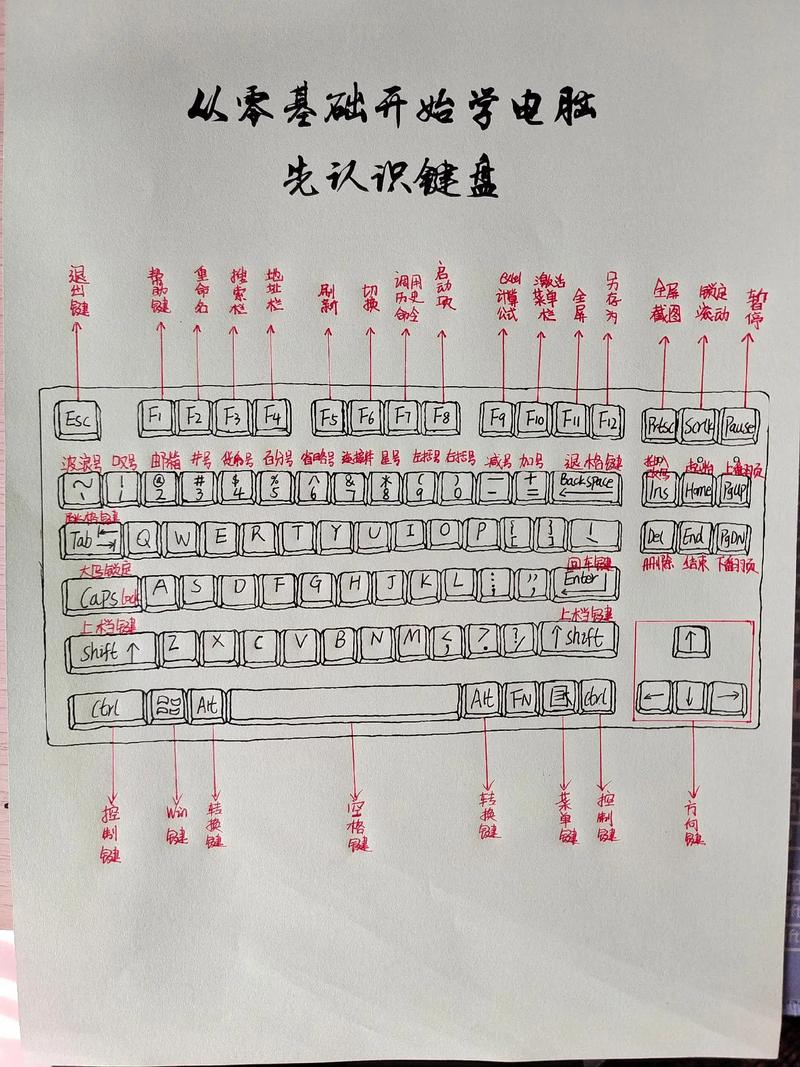 从零基础开始学电脑
先认识键盘
退出键 帮助键 重命名 搜索栏 地址栏 刷新 切换 调用历史命令 启动项 Excel计算公式 激活菜单栏 全屏 另存为 全屏截图 锁定滚动 暂停
Esc F1 F2 F3 F4 F5 F6 F7 F8 F9 F10 F11 F12 Prtsc Scrlk Pause
波浪号 叹号 邮箱 井号 货币号 百分号 省略号 连接符 星号 左括号 右括号 减号 加号 退格键 上翻页
~ ! 1 @ 2 # 3 $ 4 % 5 ^ 6 & 7 * 8 ( 9 ) 0 - + = BackSpace Ins Home PgUp
Tab Q W E R T Y U I O P { [ } ] \ Del End PgDN
大写锁定 回车键 删除 结束 下翻页
Caps lock A S D F G H J K L Enter
上档键 上档键
Shift ↑ Z X C V B N M < , ? ↑ Shift ↑
Ctrl Alt Alt FN Ctrl ← ↓ →
控制键 Win键 转换键 空格键 转换键 菜单键 控制键 方向键